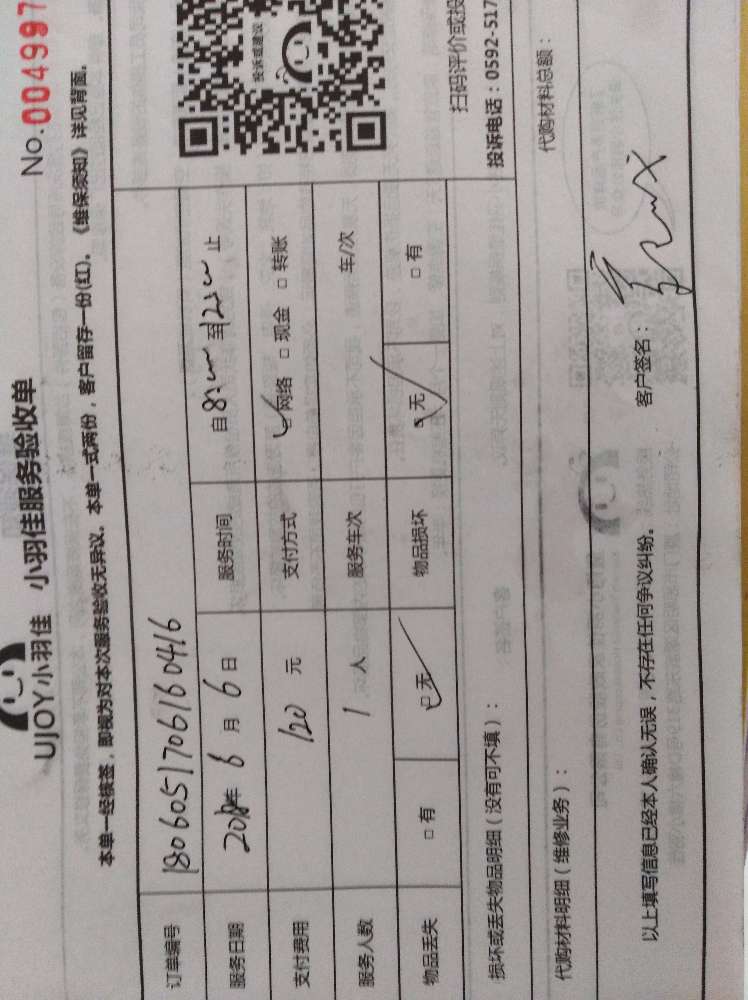 UJOY小羽佳 小羽佳服务验收单
No.004997
本单一经核签，即视为对本次服务验收无异议。本单一式两份，客户留存一份(红)。《维保须知》详见背面。
订单编号 1806051706160416
服务日期 2018年 6 月 6 日 服务时间 自 8:00 至 12:00 止
支付费用 120 元 支付方式 网络 现金 转账
服务人数 1 人 服务车次 车/次
物品丢失 有 无 物品损坏 无 有
投诉或建议
扫码评价或投
投诉电话：0592-517
损坏或丢失物品明细（没有可不填）：
代购材料明细（维修业务）： 代购材料总额：
以上填写信息已经本人确认无误，不存在任何争议纠纷。 客户签名：